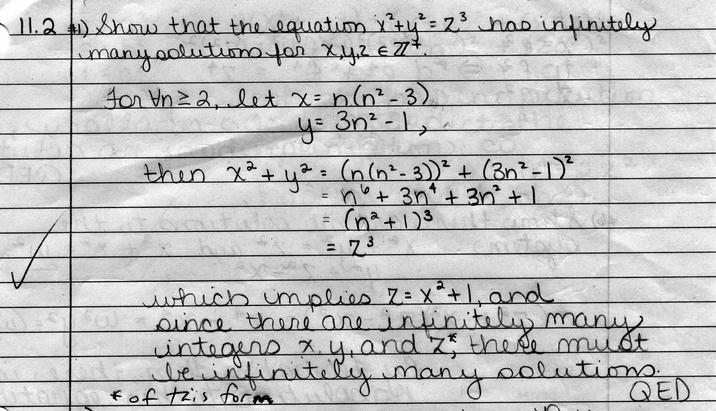 11.2 #1) Show that the equation x²+y²=z³ has infinitely
many solutions for x,y,z ∈ ℤ⁺.
For ∀n≥2, let x = n(n²-3)
y = 3n²-1,
then x² + y² = (n(n²-3))² + (3n²-1)²
= n⁶ + 3n⁴ + 3n² + 1
= (n²+1)³
= z³
✓
which implies z = x²+1, and
since there are infinitely many
integers x, y, and z*, there must
be infinitely many solutions.
* of this form
QED